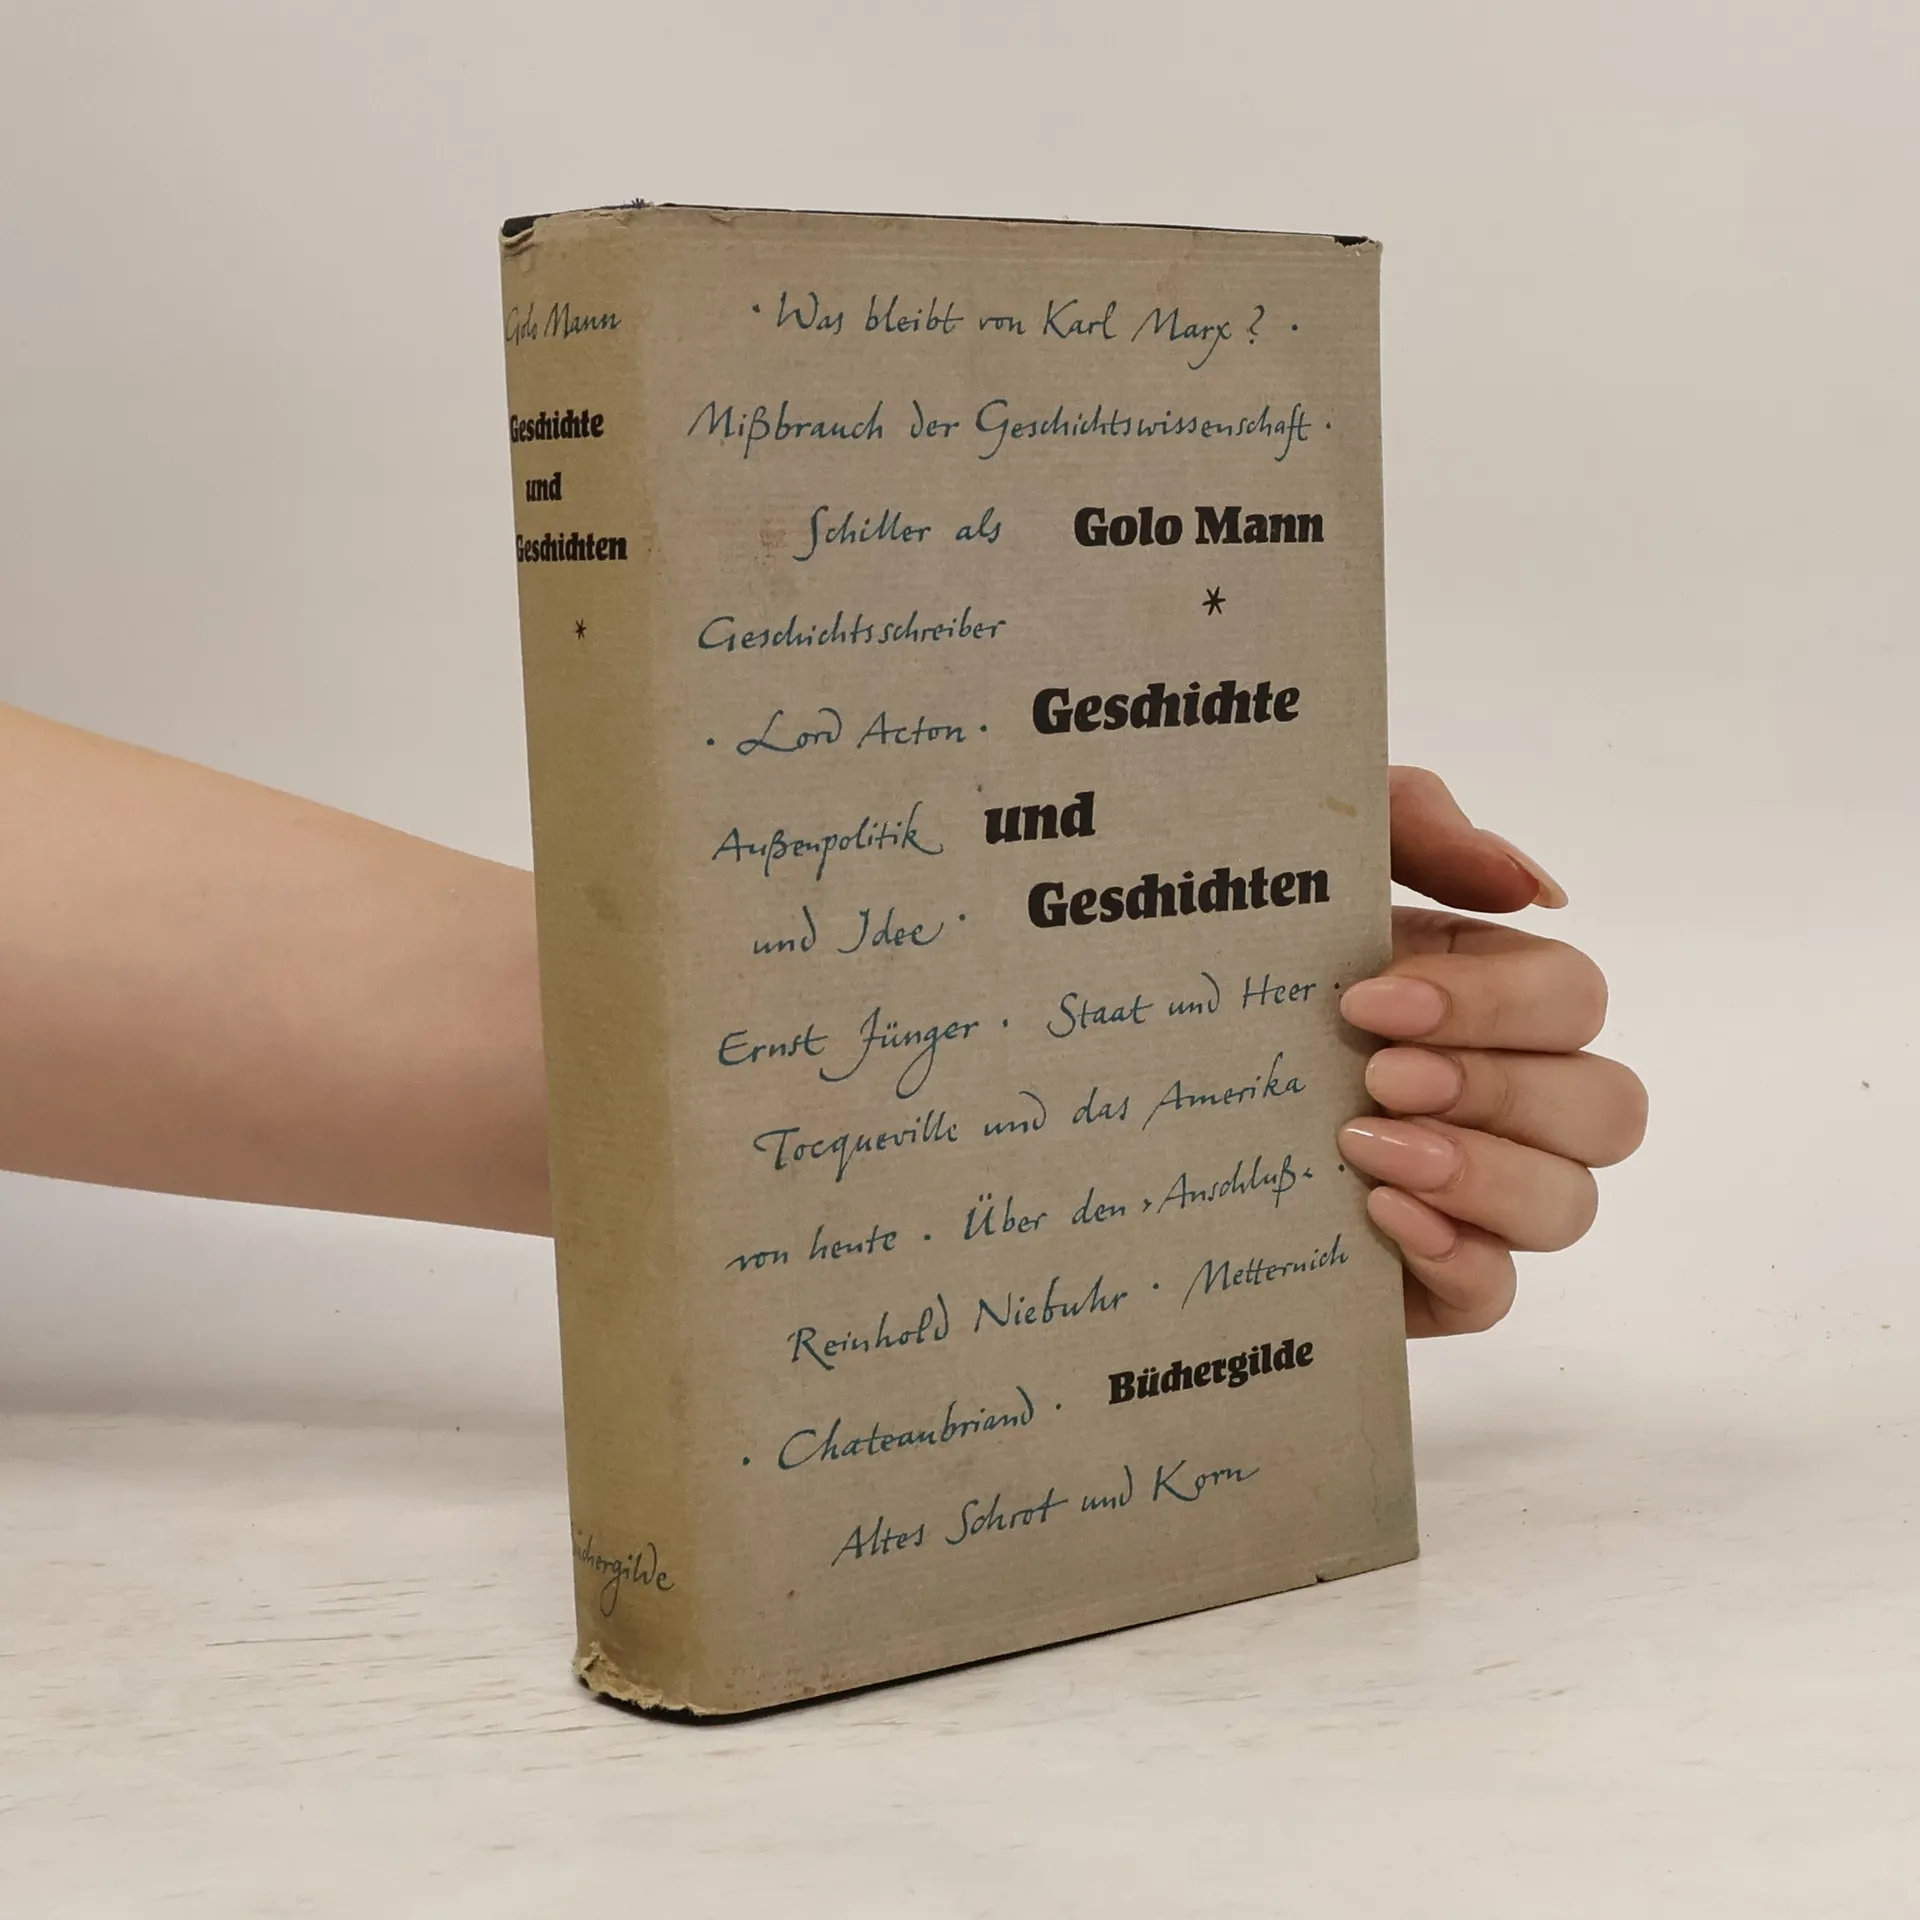 Golo Mann
Geschichte
und
Geschichten
*
Büchergilde
· Was bleibt von Karl Marx? ·
Mißbrauch der Geschichtswissenschaft ·
Schiller als
Golo Mann
*
Geschichtsschreiber
· Lord Acton ·
Geschichte
Außenpolitik
und
und Idee ·
Geschichten
Ernst Jünger · Staat und Heer ·
Tocqueville und das Amerika
von heute · Über den ›Anschluß‹ ·
Reinhold Niebuhr · Metternich
Büchergilde
· Chateaubriand ·
Altes Schrot und Korn